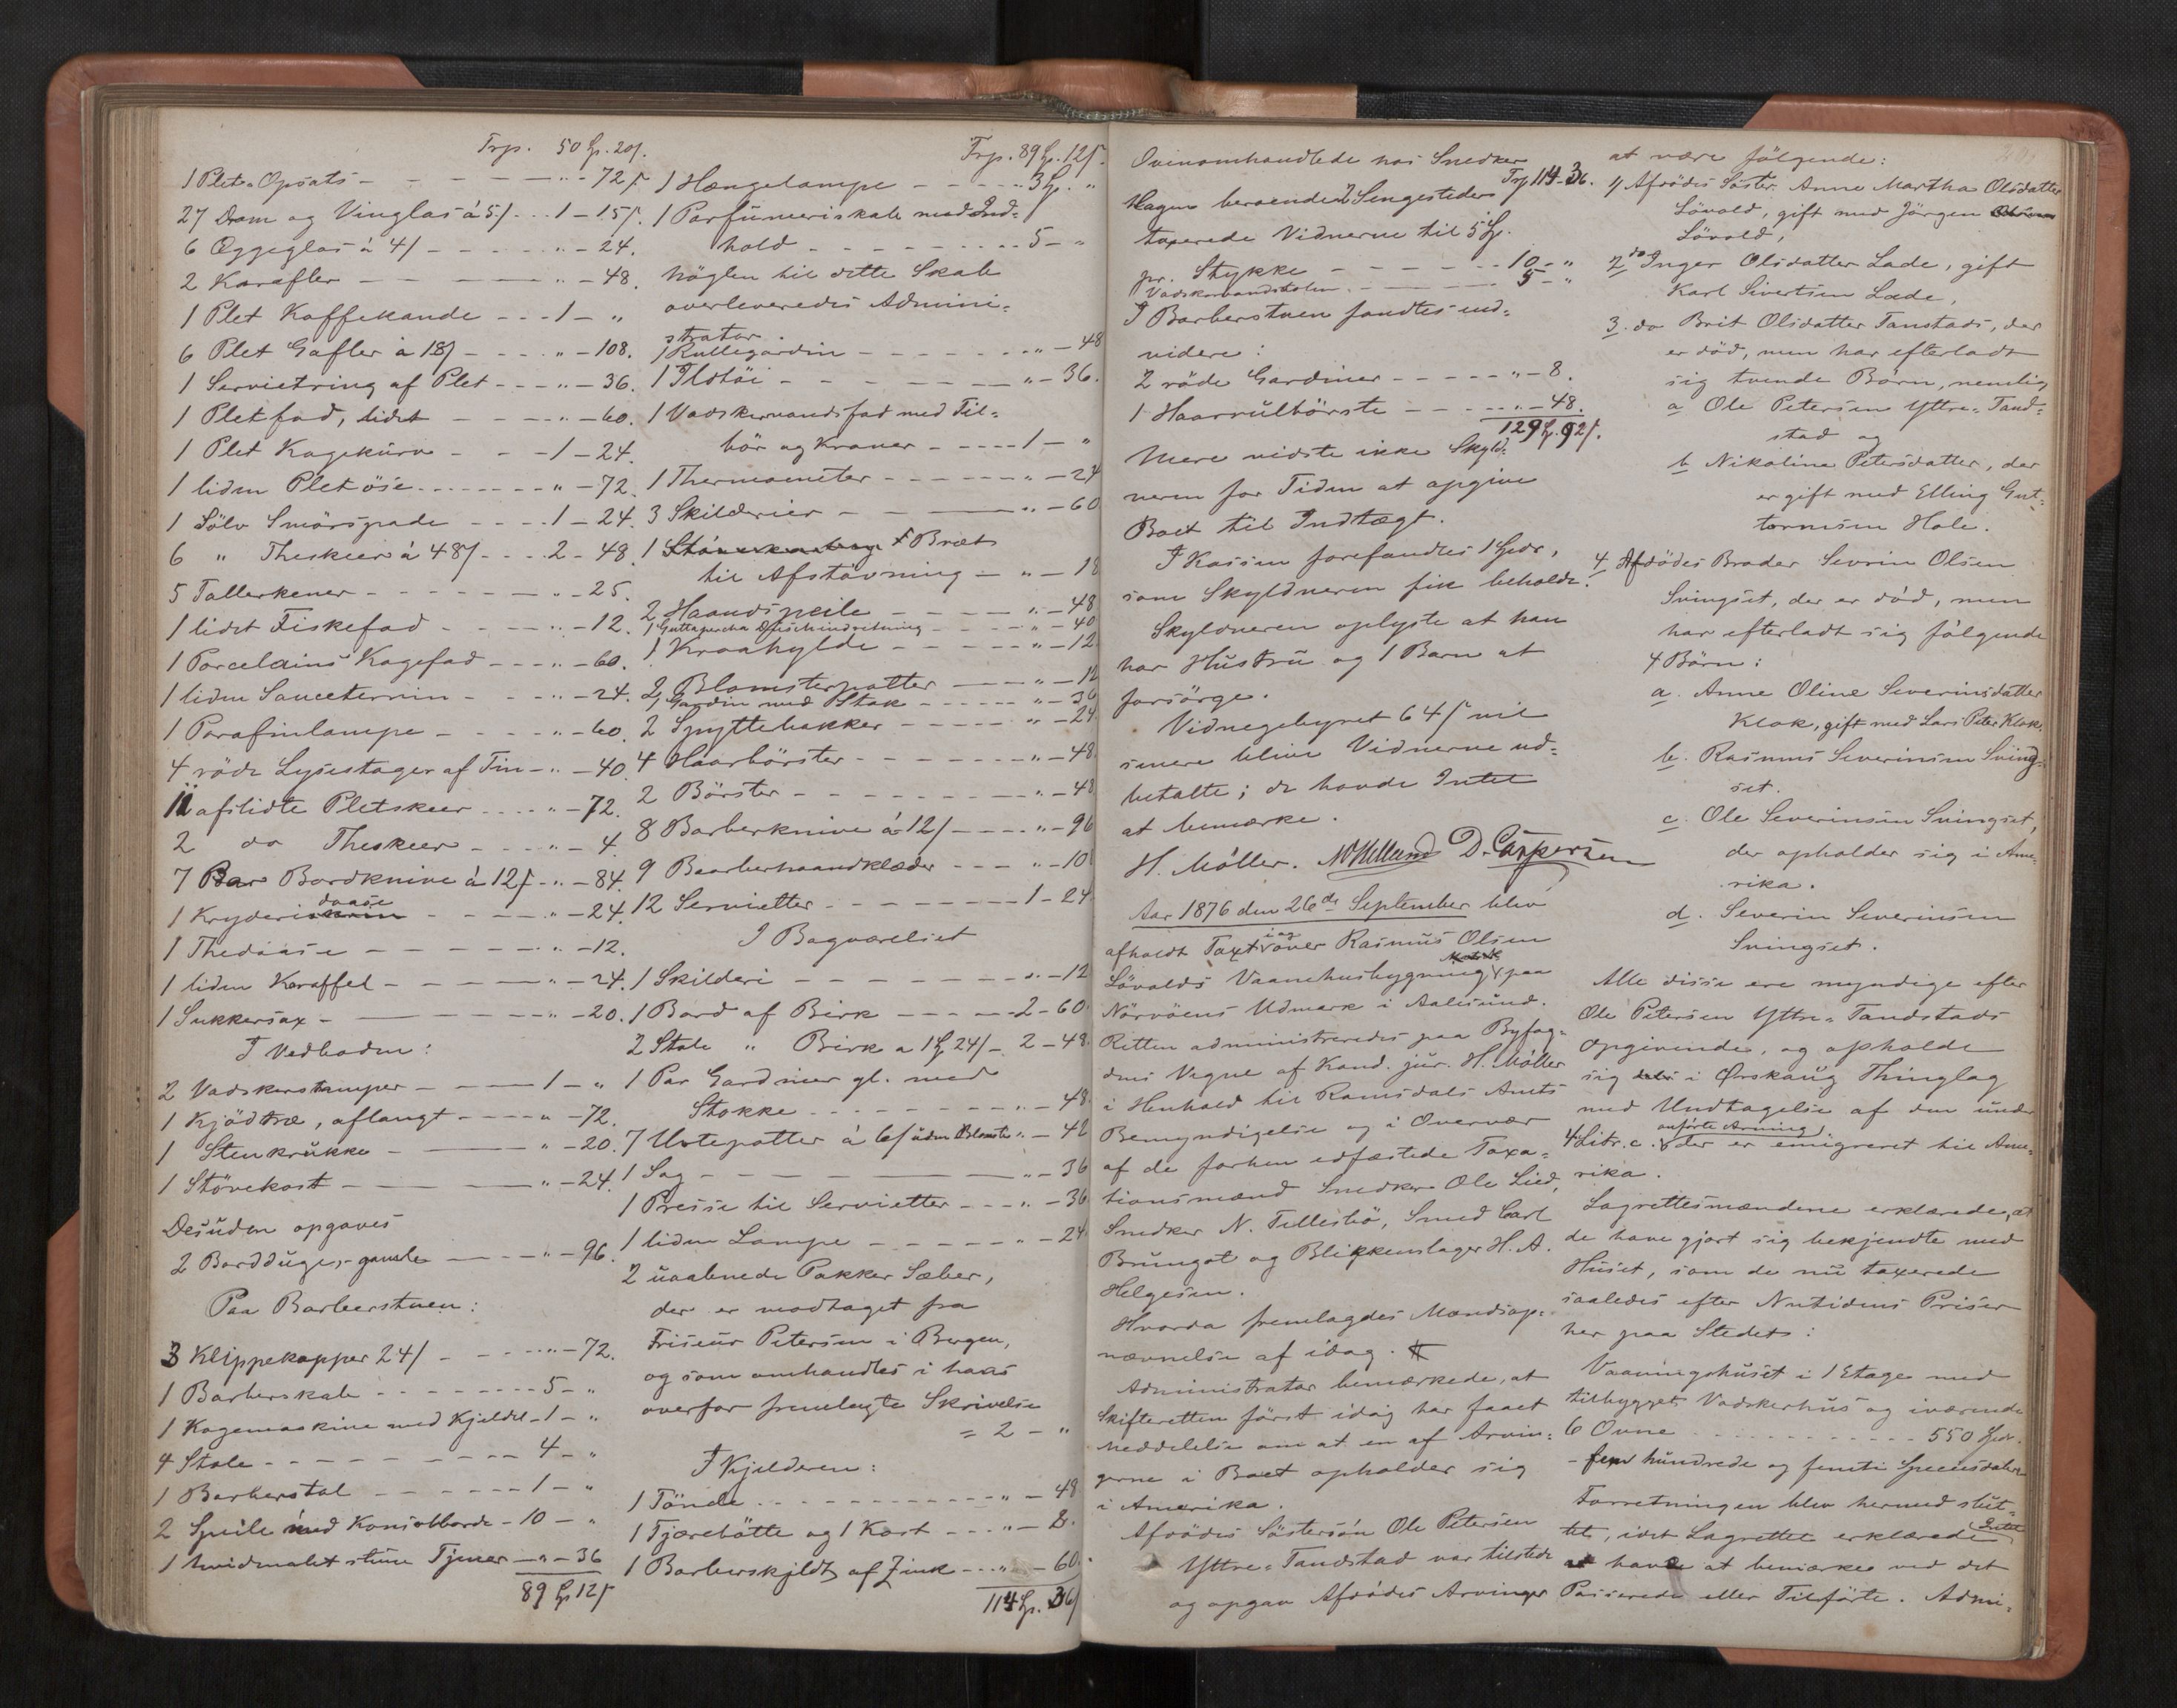 Trp. 50 Sp. 20 s.
1 Plet-Opsats - - - - " - 72 s.
27 Dram og Vinglas à 5 s. - 1 - 15 s.
6 Æggeglas à 4 s. - - - " - 24.
2 Karafler - - - " - 48.
1 Plet Kaffekande - - - 1 - "
6 Plet Gafler à 18 s. - - - " - 108.
1 Servietring af Plet - - - " - 36.
1 Pletfad, lidet - - - " - 60.
1 Plet Kagekurv - - - 1 - 24.
1 liden Pletöse - - - " - 72.
1 Sölv Smörspade - - - 1 - 24.
6 " Theskeer à 48 s. - - - 2 - 48.
5 Tallerkener - - - " - 25.
1 lidet Fiskefad - - - " - 12.
1 Porcelains Kagefad - - - " - 60.
1 liden Sauceterrin - - - " - 24.
1 Parafinlampe - - - " - 60.
4 röde Lysestager af Tin - " - 40.
11 afslidte Pletskeer - - - " - 72.
2 do Theskeer - - - " - 4.
7 Par Bordknive à 12 s. - " - 84.
1 Kryderidaase - - - " - 24.
1 Thedaase - - - " - 12.
1 liden Karaffel - - - " - 24.
1 Sukkersax - - - " - 20.
I Vedboden:
2 Vadskerstamper - - - 1 - "
1 Kjödtræ, aflangt - - - " - 72.
1 Stenkrukke - - - " - 20.
1 Stövekost - - - " - 24.
Desuden opgaves
2 Bordduge, gamle - - - " - 96.
Paa Barberstuen:
3 Klippekapper 24 s. - - - " - 72.
1 Barberskab - - - 5 - "
1 Kogemaskine med Kjeddel - 1 - "
4 Stole - - - 4 - "
1 Barberstol - - - 1 - "
2 Speile med Konsolborde - 10 - "
1 hvidmalet stum Tjener - " - 36
89 Sp. 12 s.
Trp. 89 Sp. 12 s.
1 Hængelampe - - - 3 Sp. "
1 Parfumeriskab med Ind-
hold - - - 5 - "
Nöglen til dette Skab
overleveredes Admini-
strator.
1 Rullegardin - - - " - 48
1 Ildtöi - - - " - 36.
1 Vadskervandsfad med Til-
bör og Kraner - - - 1 - "
1 Thermometer - - - " - 24
3 Skilderier - - - " - 60
1 Bræt
til Afstövning - " - 18
2 Haandspeile - - - " - 48
1 Guttapercha Douscheindretning - - - " - 40
1 Kraahylde - - - " - 12
2 Blomsterpotter - - - " - 12
1 Gardin med Stok - - - " - 36
2 Spyttebakker - - - " - 24
4 Haarbörster - - - " - 48.
2 Börster - - - " - 48
8 Barberknive à 12 s. - - - " - 96
9 Baarberhaandklæder - - - " - 10
12 Servietter - - - 1 - 24
I Bagværelset
1 Skilderi - - - " - 12
1 Bord af Birk - - - 2 - 60.
2 Stole " Birk a 1 Sp. 24 s. - 2 - 48.
1 Par Gardiner gl. med
Stokke - - - " - 48.
7 Urtepotter à 6 s. uden Blomster " - 42
1 Sag - - - " - 36
1 Presse til Servietter - - - " - 36
1 liden Lampe - - - " - 24
2 uaabnede Pakker Sæber,
der er modtaget fra
Friseur Petersen i Bergen,
og som omhandles i hans
overfor fremlagte Skrivelse
= 2 - "
I Kjelderen:
1 Tönde - - - " - 48
1 Tjærebötte og 1 Kost - - - " - 8.
1 Barberskjldt af Zink - - - " - 60.
114 Sp. 36 s.
Ovenomhandlede hos Snedker
Trp 114 - 36.
Hagen beroende 2 Sengesteder
taxerede Vidnerne til 5 Sp.
pr. Stykke - - - 10 - "
Vadskervandstolen - - - 5 - "
I Barberstuen fandtes end-
videre:
2 röde Gardiner - - - " - 8.
1 Haarrulbörste - - - " - 48.
129 Sp. 92 s.
Mere vidste ikke Skyld-
neren for Tiden at opgive
Boet til Indtægt.
I Kassen forefandtes 1 Spdr,
som Skyldneren fik beholde.
Skyldneren oplyste at han
har Hustru og 1 Barn at
forsörge.
Vidnegebyret 64 s. vil
senere blive Vidnerne ud-
betalte; de havde Intet
at bemærke.
H. Möller. D. Caspersen
Aar 1876 den 26de September blev
afholdt Taxt i og over Rasmus Olsen
Lövolds Vaanehusbygning paa
Nörvöens Udmark i Aalesund.
Retten administreredes paa Byfog-
dens Vegne af Kand. jur. H. Möller
i Henhold til Romsdals Amts
Bemyndigelse og i Overvær
af de forhen edfæstede Taxa-
tionsmænd Snedker Ole Lied,
Snedker N. Tellesbö, Smed Carl
Brungot og Blikkenslager H. A.
Helgesen.
Hvorda fremlagdes Mandsop-
nævnelse af idag.
Administrator bemærkede, at
Skifteretten först idag har faaet
Meddelelse om at en af Arvin-
gerne i Boet opholder sig
i Amerika.
Afdödes Söstersön Ole Petersen
Yttre-Tandstad var tilstede
og opgav Afdödes Arvinger
at være fölgende:
1) Afdödes Söster Anne Martha Olsdatter
Lövold, gift med Jörgen
Lövold,
2 do Inger Olsdatter Lade, gift
Karl Sivertsen Lade,
3. do Brit Olsdatter Tanstad, der
er död, men har efterladt
sig tvende Börn, nemlig
a Ole Petersen Yttre-Tand-
stad og
b Nikoline Petersdatter, der
er gift med Elling Gut-
tormsen Hole.
4 Afdödes Broder Sevrin Olsen
Svingset, der er död, men
har efterladt sig fölgende
4 Börn:
a. Anne Oline Severinsdatter
Klok, gift med Lars Peter Klok.
b. Rasmus Severinsen Sving-
set.
c. Ole Severinsen Svingset,
der opholder sig i Ame-
rika.
d. Severin Severinsen
Svingset.
Alle disse ere myndige efter
Ole Petersen Yttre-Tandstads
Opgivende, og opholde
sig i Ørskaug Thinglag
med Undtagelse af den under
4 Litr. c. anförte Arving der er emigreret til Ame-
rika.
Lagrettesmændene erklærede, at
de have gjort sig bekjendte med
Huset, som de nu taxerede
saaledes efter Nutidens Priser
her paa Stedet:
Vaaningshuset i 1 Etage med
tilbygget Vadskerhus og iværende
6 Ovne - - - 550 Spdr.
- fem hundrede og femti Speciesdaler
Forretningen blev hermed slut-
tet, idet Lagrettet erklærede Intet
at have at bemærke ved det
Passerede eller Tilförte. Admi-